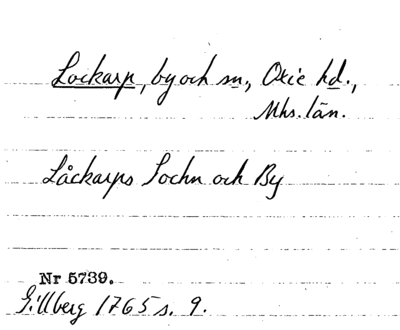 Lockarp, by och sn, Oxie hd.,
Mhs. län.
Låckarps Sochn och By
Nr 5739.
Gillberg 1765 s. 9.